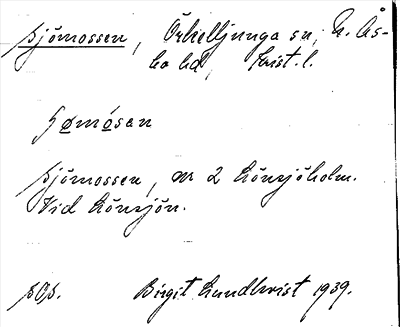 Sjömossen, Örkelljunga sn, N. Ås-
bo hd, Krist. l.
Sømósen
Sjömossen, nr 2 Lönsjöholm.
Vid Lönsjön.
SOS. Birgit Lundkvist 1939.